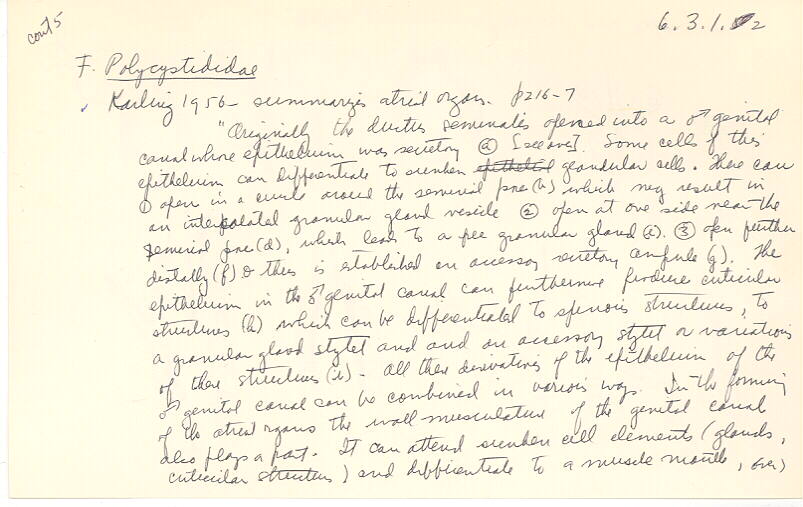 cont 5
6.3.1.2
F. Polycystididae
Karling 1956 - summarizes atrial organs. p216-7
"Originally the ductus seminalis opened into a ♂ genital
canal whose epithelium was secretory (a) [see over]. Some cells of this
epithelium can differentiate to sunken glandular cells. These can
① open in a circle around the seminal pore (b) which may result in
an interpolated granular gland vesicle ② open at one side near the
seminal pore (d), which leads to a free granular gland (e). ③ open further
distally (f) & thus is established an accessory secretory ampule (g). The
epithelium in the ♂ genital canal can furthermore produce cuticular
structures (h) which can be differentiated to spinous structures, to
a granular gland stylet and and an accessory stylet or variations
of these structures (i) - all these derivatives of the epithelium of the
♂ genital canal can be combined in various ways. In the forming
of the atrial organs the wall-musculature of the genital canal
also plays a part. It can attend sunken cell elements (glands,
cuticular structures) and differentiate to a muscle mantle, over)